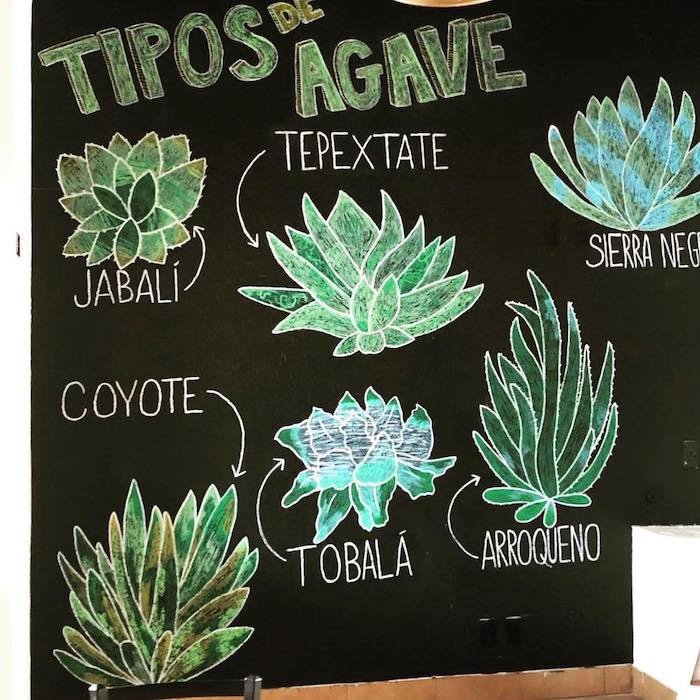 TIPOS DE AGAVE
TEPEXTATE
JABALÍ
SIERRA NEG
COYOTE
TOBALÁ
ARROQUENO